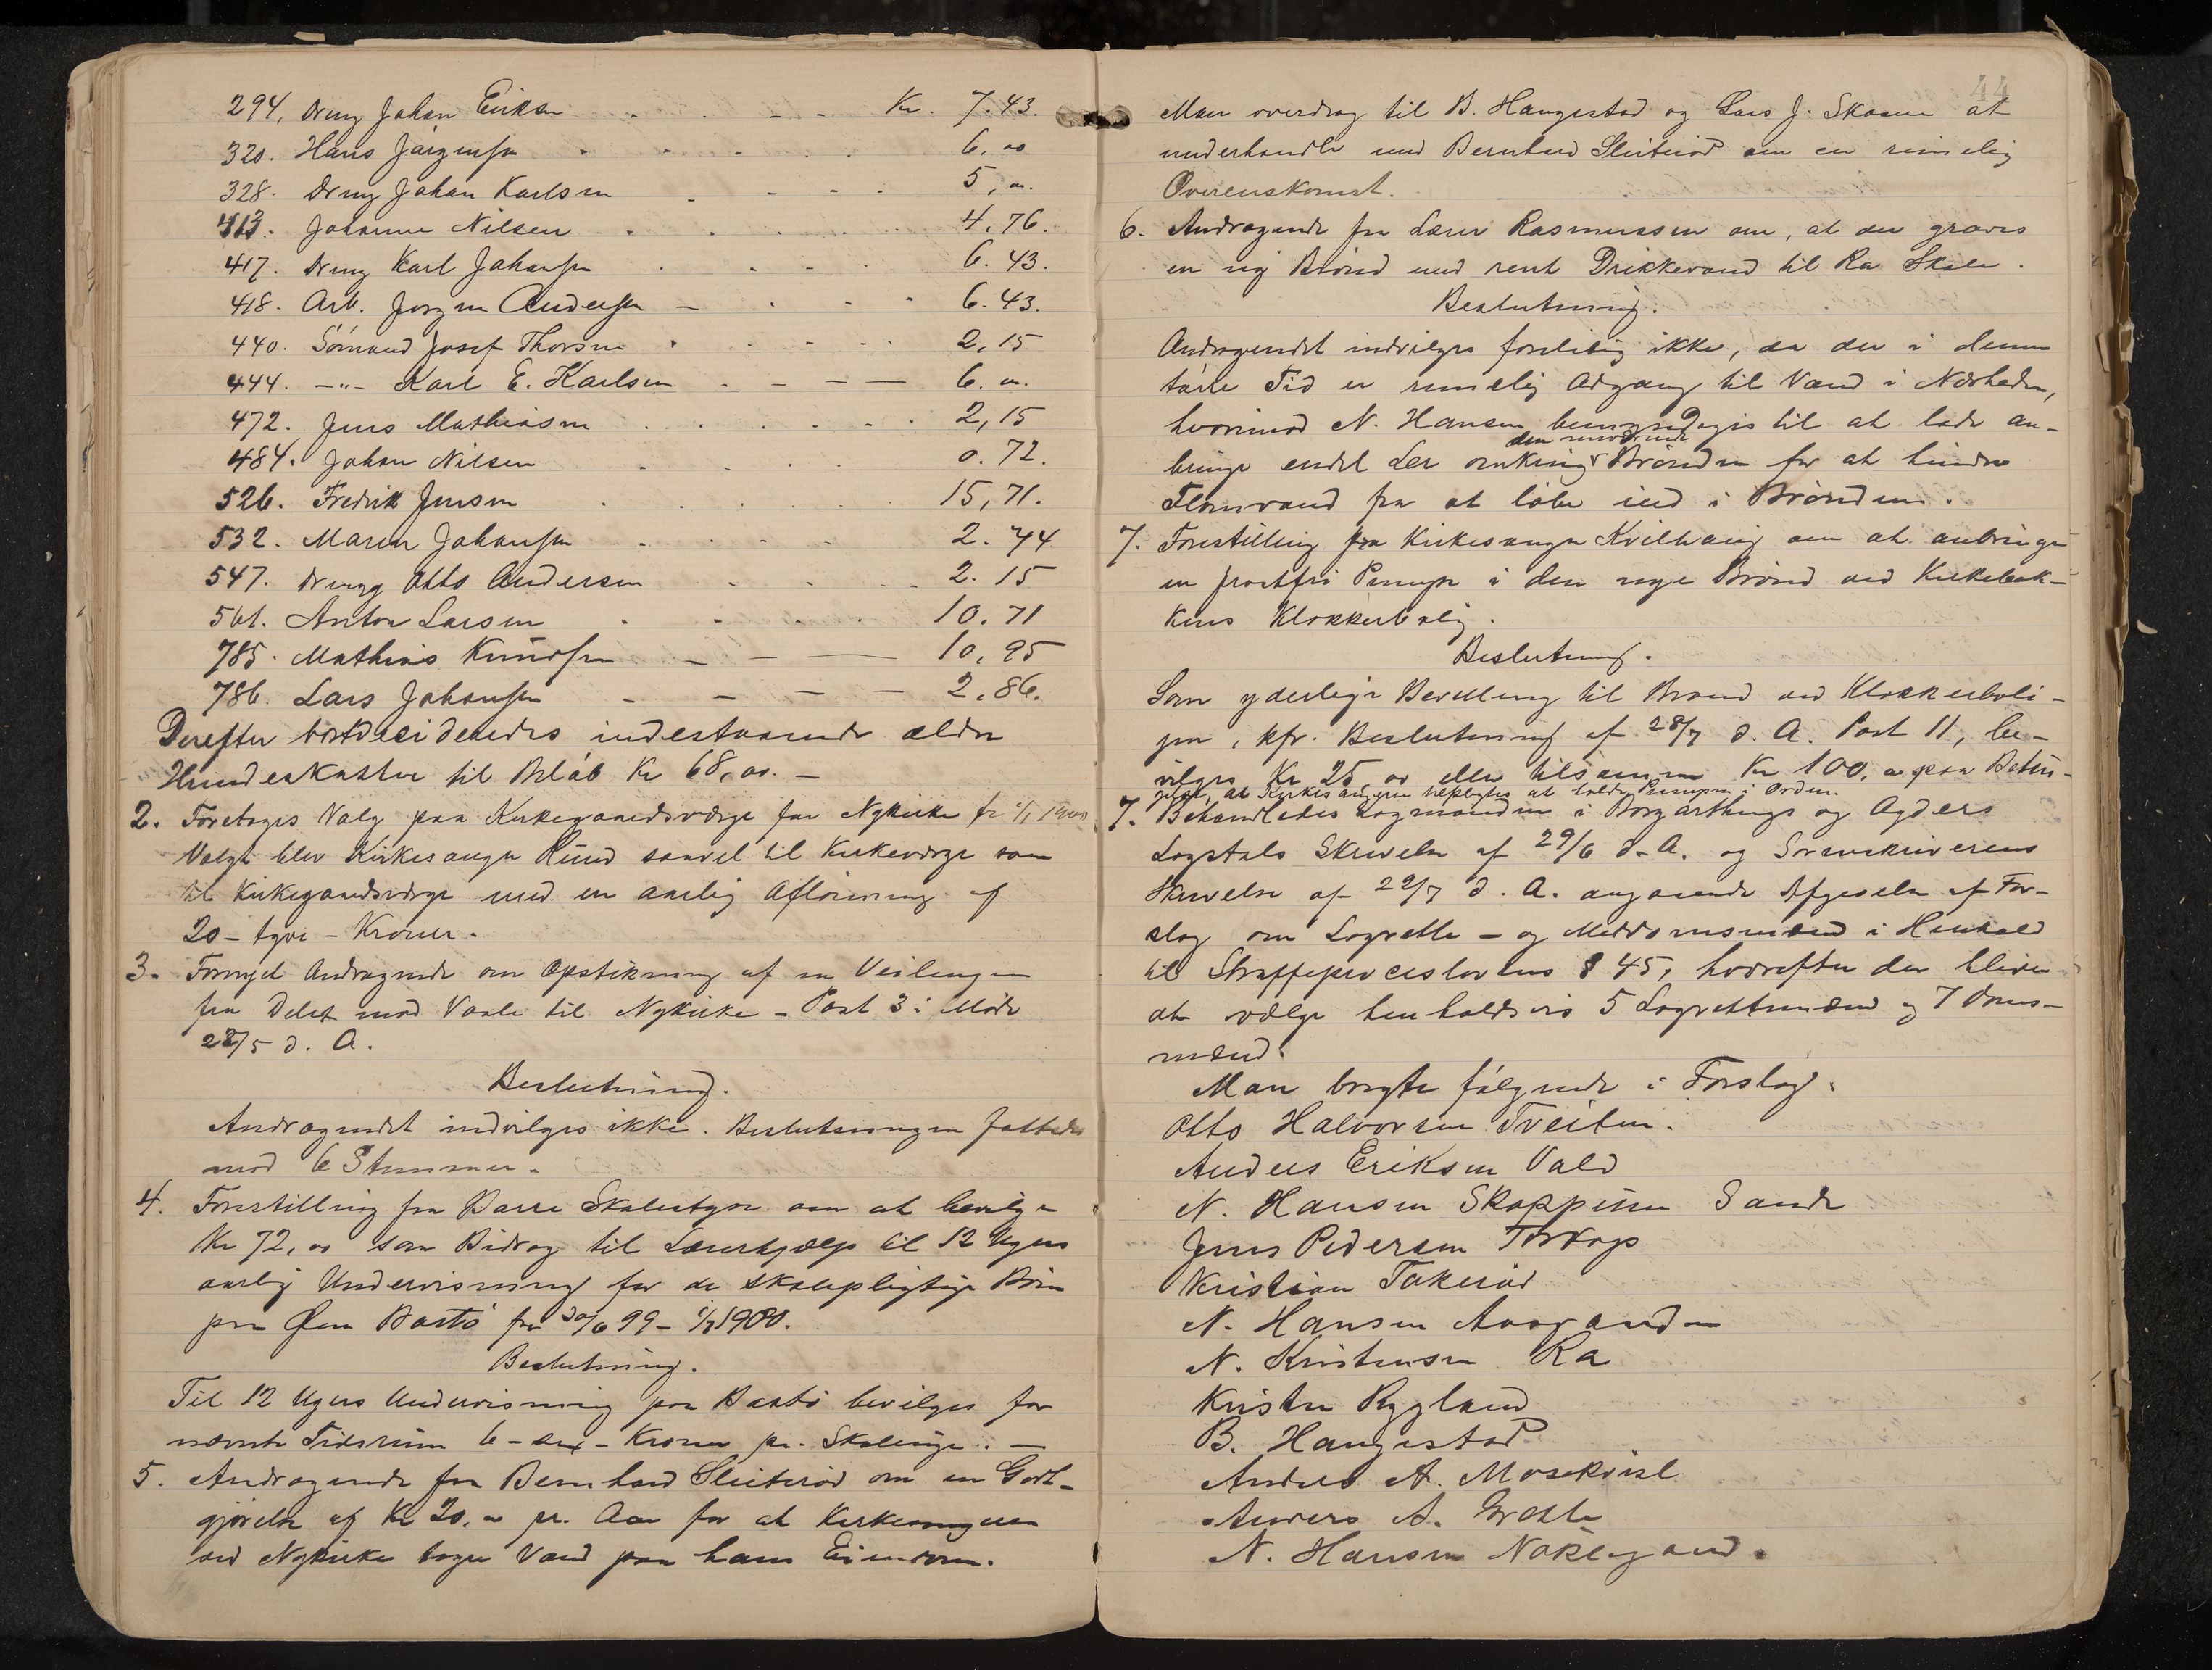 294, Dreng Johan Eriksen Kr. 7.43.
320. Hans Jørgensen 6,00
328. Dreng Johan Karlsen 5,00.
413. Johanne Nilsen 4,76.
417. Dreng Karl Johansen 6.43.
418. Arb. Jørgen Andersen 6.43.
440. Sømand Josef Thorsen 2,15
444. -"- Karl E. Karlsen 6.00.
472. Jens Mathiasen 2,15
484. Johan Nilsen 0.72.
526. Fredrik Jensen 15,71.
532. Maren Johansen 2.44
547. Dreng Otto Andersen 2.15
561. Anton Larsen 10.71
785. Mathias Knudsen 10,95
786. Lars Johansen 2.86.
Derefter indestaaende ældre
Hundeskatter til Beløb Kr 68,00. -
2. Foretoges Valg paa Kirkegaardsværge for Nykirke fr 1/1 1900
Valgt blev Kirkesanger Ruud saavel til Kirkeværge som
til Kirkegaardsværge med en aarlig Aflønning af
20 - tyve - Kroner.
3. Fornyet Andragende om Opstikning af en Veilengen
fra Delet mod Vaale til Nykirke - Post 3 i Møde
28/5 d. A.
Beslutning.
Andragendet indvilges ikke. Beslutningen fattedes
mod 6 Stemmer.
4. Forestilling fra Borre Skolestyre om at bevilge
Kr 72,00 som Bidrag til Lærerhjælp til 12 Ugers
aarlig Undervisning for de skolepligtige Børn
paa Øen Bastø fra 30/6 99 - 1/7 1900.
Beslutning.
Til 12 Ugers Undervisning paa Bastø bevilges for
nævnte Tidsrum 6 - sex - Kroner pr. Skoleuge. -
5. Andragende fra Bernhard Sletterød om en Godt-
gjørelse af Kr 20,00 pr. Aar for at Kirkesangeren
ved Nykirke tager Vand paa hans Eiendom.
44
Man overdrog til B. Haugestad og Lars J. Skaane at
underhandle med Bernhard Sletterød om en rimelig
Overenskomst.
6. Andragende fra Lærer Rasmussen om, at der graves
en ny Brønd med rent Drikkevand til Ra Skole.
Beslutning.
Andragendet indvilges foreløbig ikke, da der i denne
tørre Tid er rimelig Adgang til Vand i Nærheden,
hvorimod N. Hansen bemyndiges til at lade an-
den nuværende
bringe endel Ler omkring Brønden for at hindre
Flomvand fra at løbe ind i Brønden.
7. Forestilling fra Kirkesanger Kvilhaug om at anbringe
en frostfri Pumpe i den nye Brønd ved Kirkebak-
kens Klokkerbolig.
Beslutning.
Som yderligere Bevilling til Brønd ved Klokkerboli-
gen, kfr. Beslutning af 28/7 d. A. Post 11, be-
vilges Kr 25,00 eller tilsammen Kr 100,00 paa Betin-
gelse, at Kirkesangeren tilpligtes at holde Pumpen i Orden.
7. Behandledes Lagmanden i Borgarthings og Agders
Lagstols Skrivelse af 29/6 d. A. og Sorenskriverens
Skrivelse af 22/7 d. A. angaaende Afgivelse af For-
slag om Lagrette- og Meddomsmænd i Henhold
til Straffeproceslovens § 45, hvorefter der bliver
at vælge henholdsvis 5 Lagrettemænd og 7 Doms-
mænd.
Man bragte følgende i Forslag:
Otto Halvorsen Tveiten.
Anders Eriksen Vold
N. Hansen Skoppum Sande
Jens Pedersen Tordrop
Kristian Takerød
N. Hansen Aasgaarden
N. Kristensen Ra
Kristen Rygland
B. Haugestad
Anders A. Mosekvist
Anders A. Grette
N. Hansen Nøklegaard.